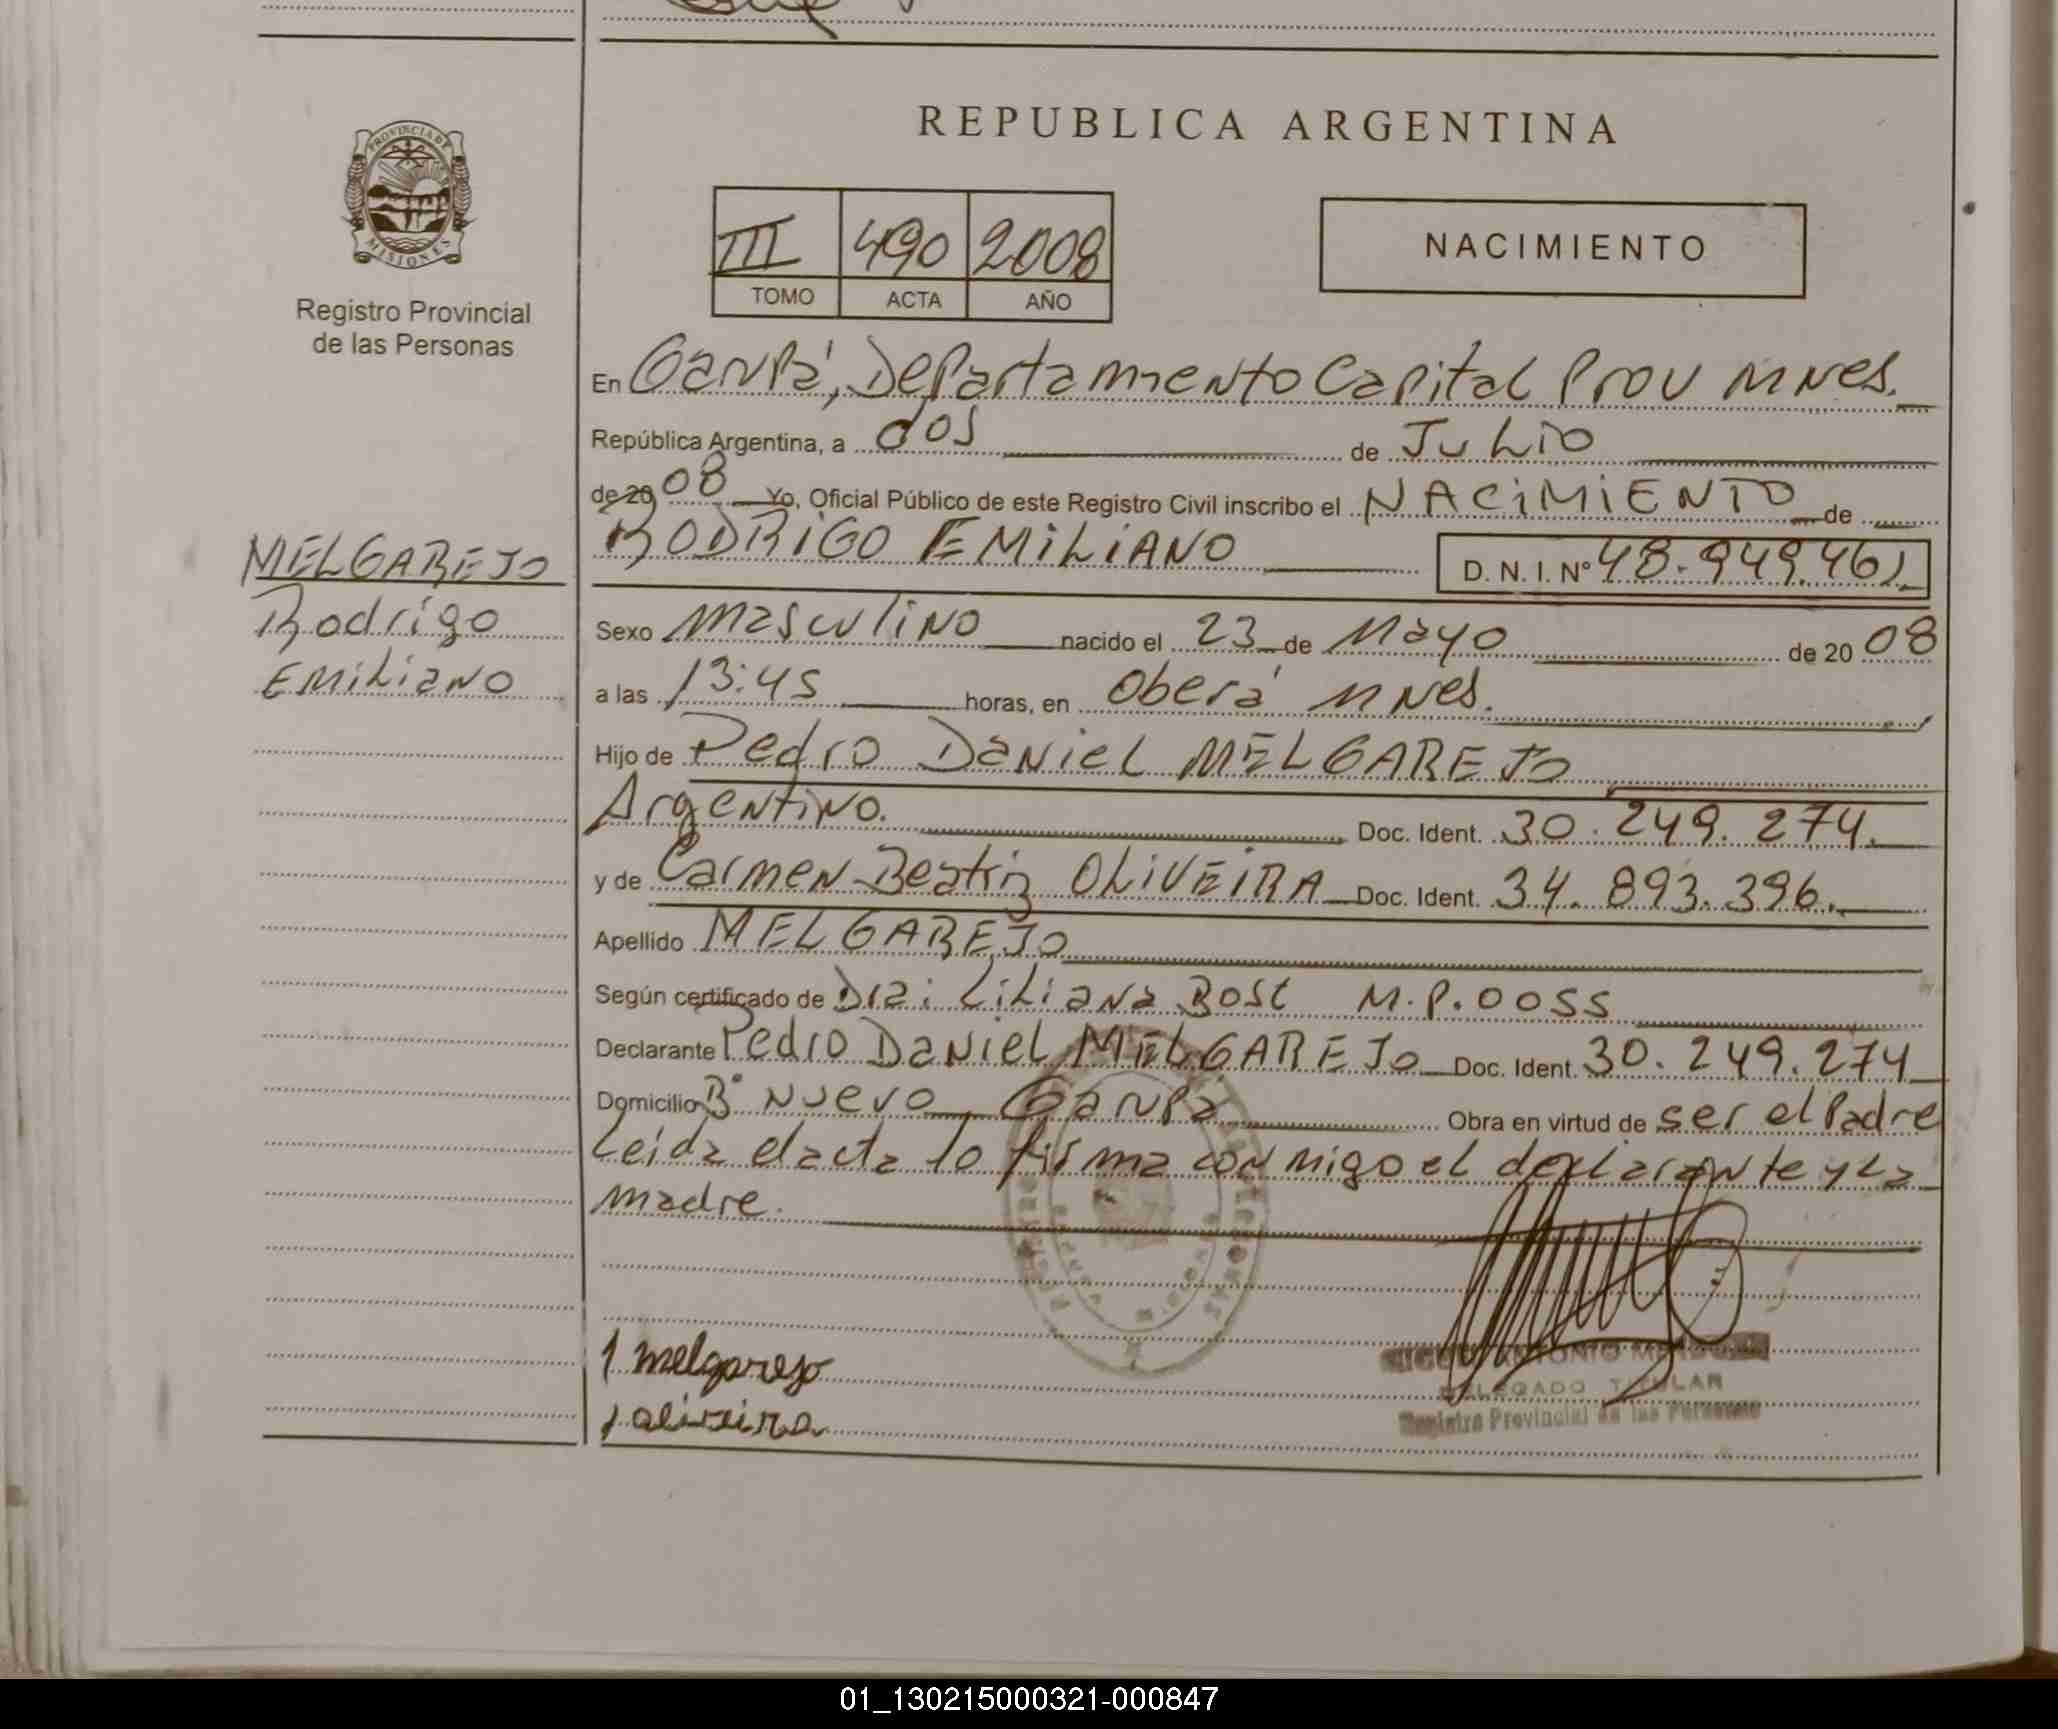 REPUBLICA ARGENTINA
PROVINCIA DE
MISIONES
Registro Provincial
de las Personas
III 490 2008
TOMO ACTA AÑO
NACIMIENTO
En Garupá, Departamento Capital Prov Mnes.
República Argentina, a dos de Julio
de 2008 Yo, Oficial Público de este Registro Civil inscribo el NACIMIENTO de
RODRIGO EMILIANO D. N. I. Nº 48.949.461
MELGAREJO
Rodrigo
Emiliano
Sexo masculino nacido el 23 de Mayo de 2008
a las 13:45 horas, en Oberá Mnes.
Hijo de Pedro Daniel MELGAREJO
Argentino. Doc. Ident. 30.249.274.
y de Carmen Beatriz OLIVEIRA Doc. Ident. 34.893.396.
Apellido MELGAREJO
Según certificado de Dra: Liliana M.P.0055
Declarante Pedro Daniel MELGAREJO Doc. Ident. 30.249.274
Domicilio Bº Nuevo Garupá Obra en virtud de ser el Padre
Leida el acta lo firma conmigo el declarante y La
madre.
melgarejo
oliveira
ANTONIO
DELEGADO TITULAR
Registro Provincial de las Personas
01_130215000321-000847